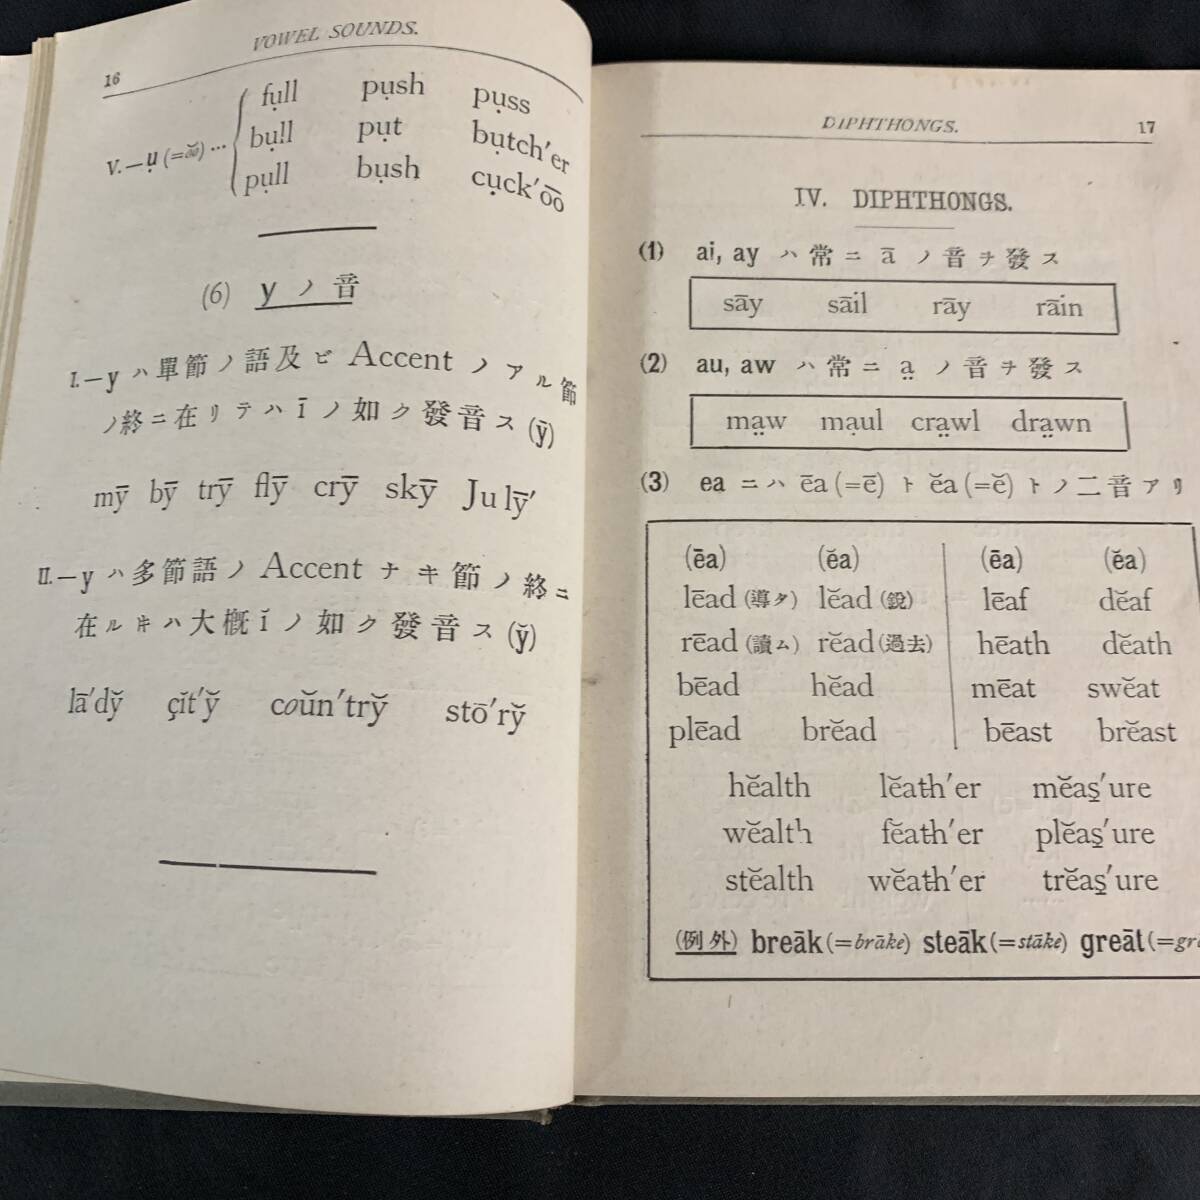 16
VOWEL SOUNDS.
fụll pụsh pụss
V.—ụ (=o͝o) ... bụll pụt bụtch′er
pụll bụsh cụck′o͞o
(6) y ノ 音
I.—y ハ單節ノ語及ビ Accent ノアル節
ノ終ニ在リテハ ī ノ如ク發音ス (ȳ)
mȳ bȳ trȳ flȳ crȳ skȳ Ju lȳ′
II.—y ハ多節語ノ Accent ナキ節ノ終ニ
在ルキハ大概 ĭ ノ如ク發音ス (y̆)
lā′dy̆ çĭt′y̆ coŭn′try̆ stō′ry̆
DIPHTHONGS. 17
IV. DIPHTHONGS.
(1) ai, ay ハ常ニ ā ノ音ヲ發ス
sāy sāil rāy rāin
(2) au, aw ハ常ニ a̤ ノ音ヲ發ス
ma̤w mạul cra̤wl dra̤wn
(3) ea ニハ ēa (=ē) ト ĕa (=ĕ) トノ二音アリ
(ēa) (ĕa) (ēa) (ĕa)
lēad (導ク) lĕad (鉛) lēaf dĕaf
rēad (讀ム) rĕad (過去) hēath dĕath
bēad hĕad mēat swĕat
plēad brĕad bēast brĕast
hĕalth lĕath′er mĕas̱′ure
wĕalth fĕath′er plĕas̱′ure
stĕalth wĕath′er trĕas̱′ure
(例外) breāk (=brāke) steāk (=stāke) greāt (=gr